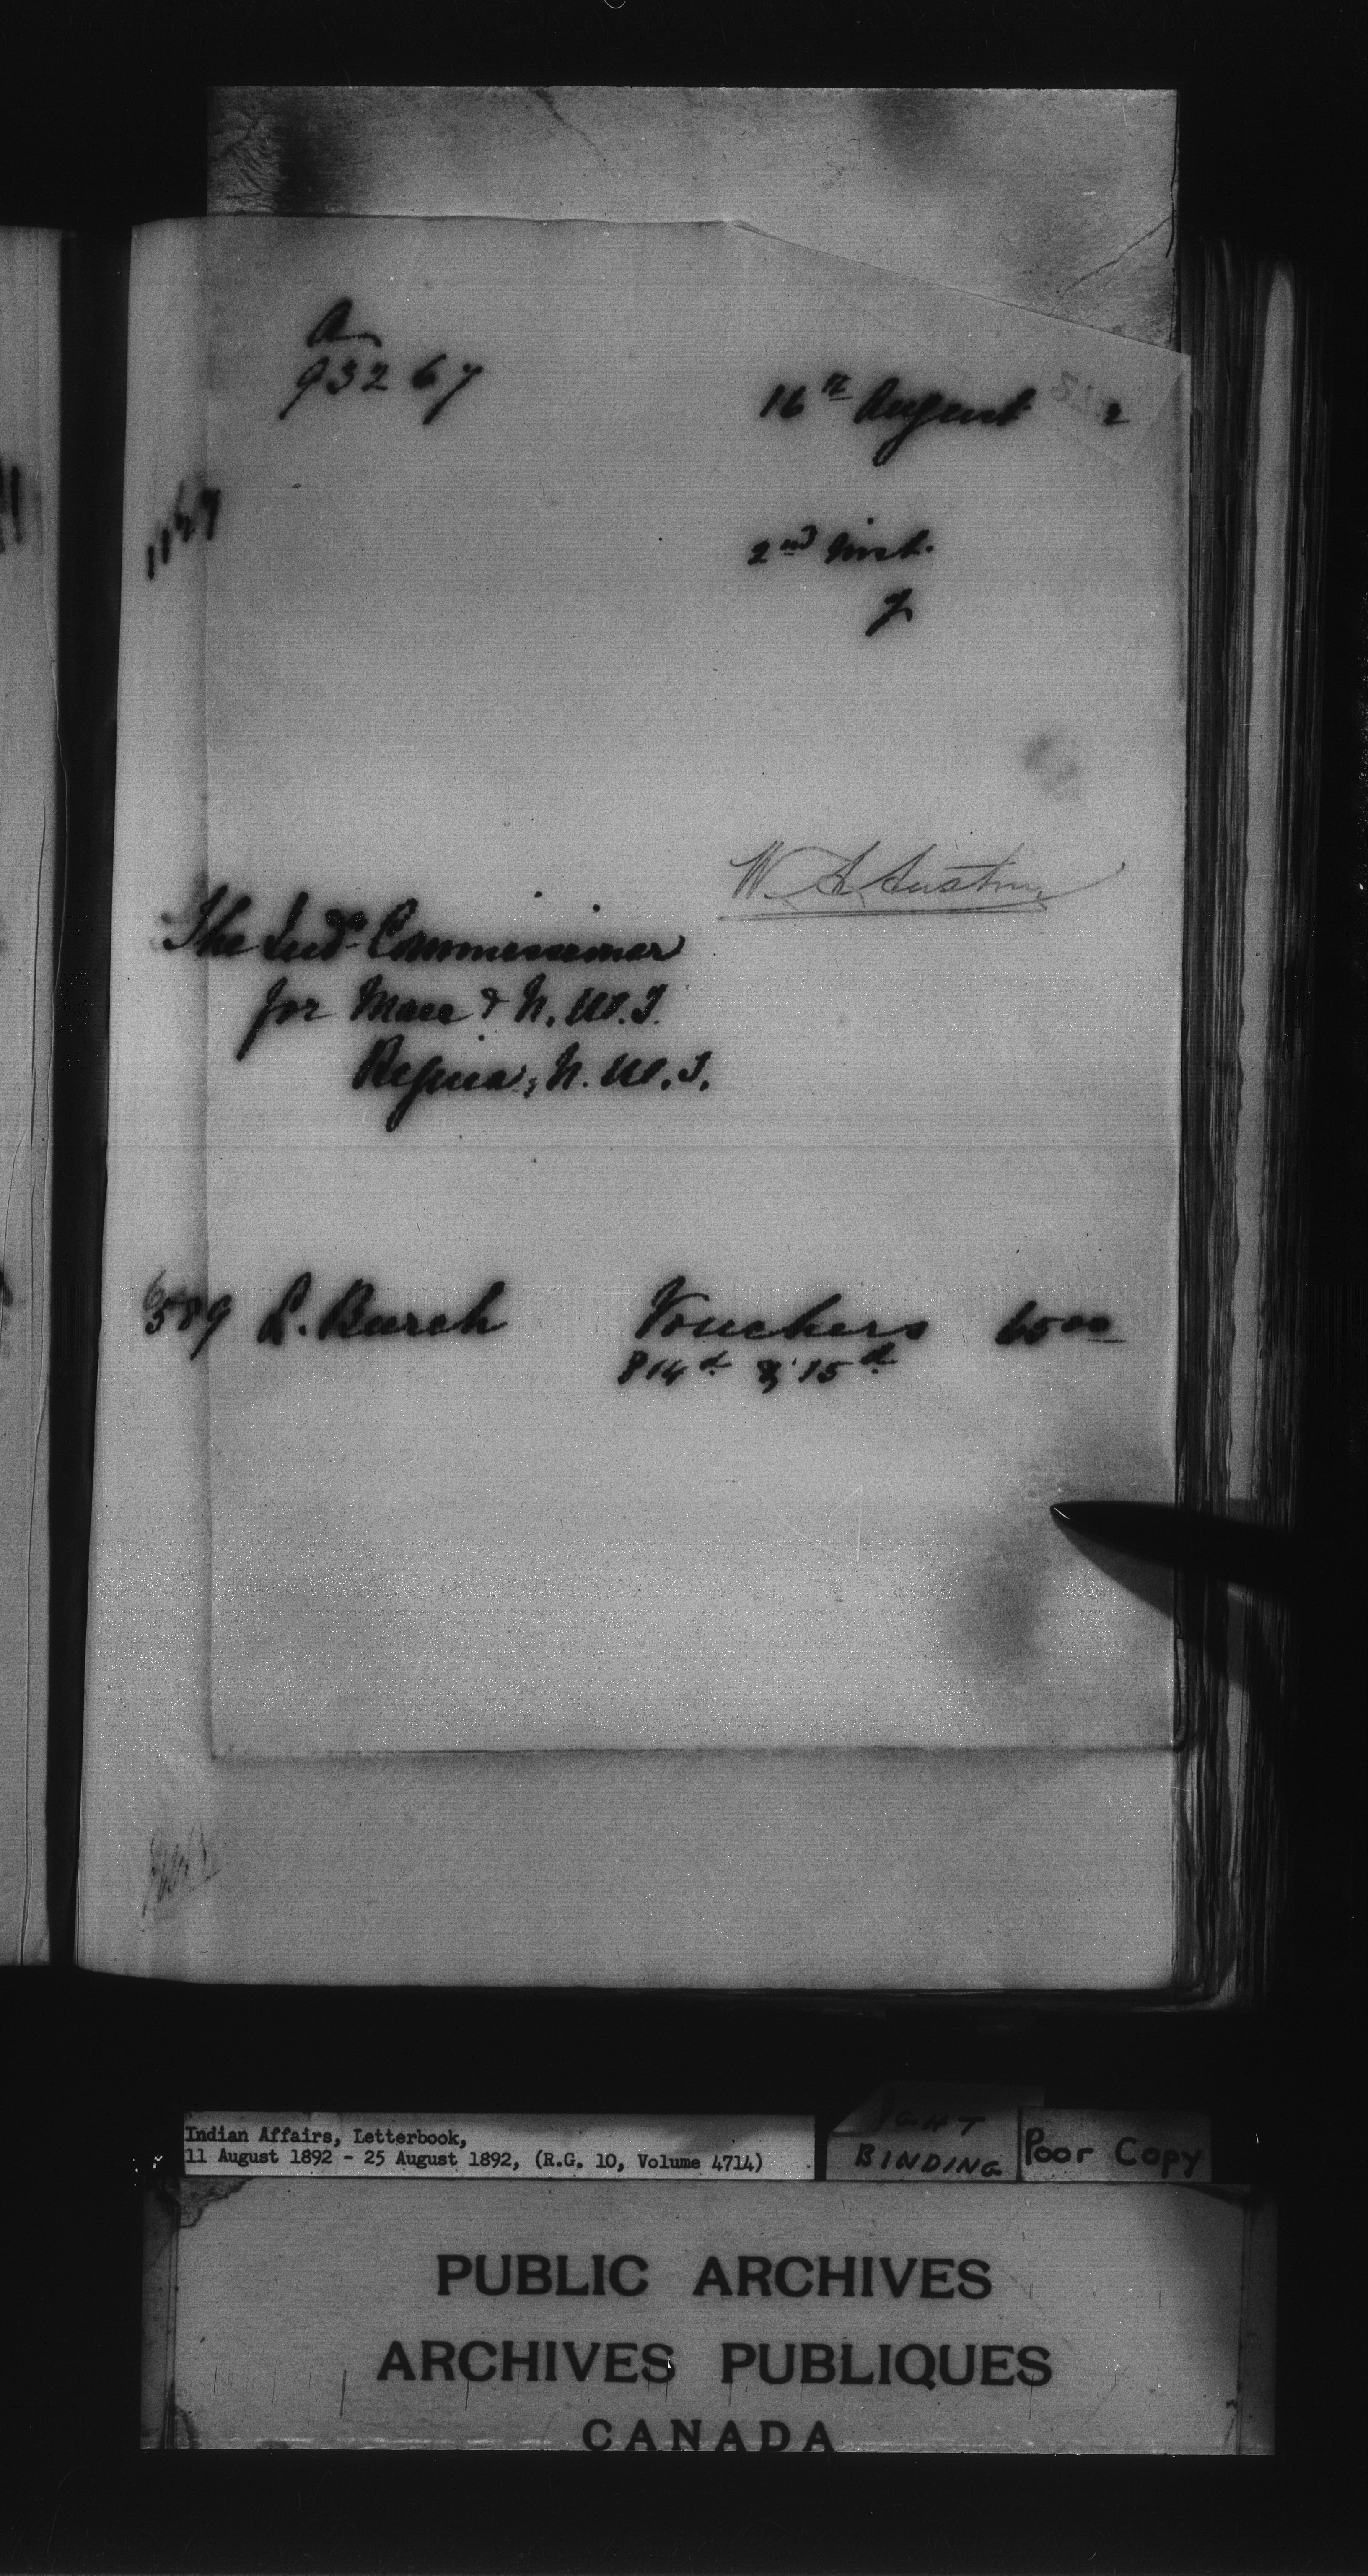 A
93267
16th August 2
1169
2nd Inst.
W. A. Austin
The Indn Commissioner
for Man & N. W. T.
Regina, N. W. T.
6589 L. Burch Vouchers 65 00
Indian Affairs, Letterbook,
11 August 1892 - 25 August 1892, (R.G. 10, Volume 4714)
BINDING
Poor Copy
PUBLIC ARCHIVES
ARCHIVES PUBLIQUES
CANADA